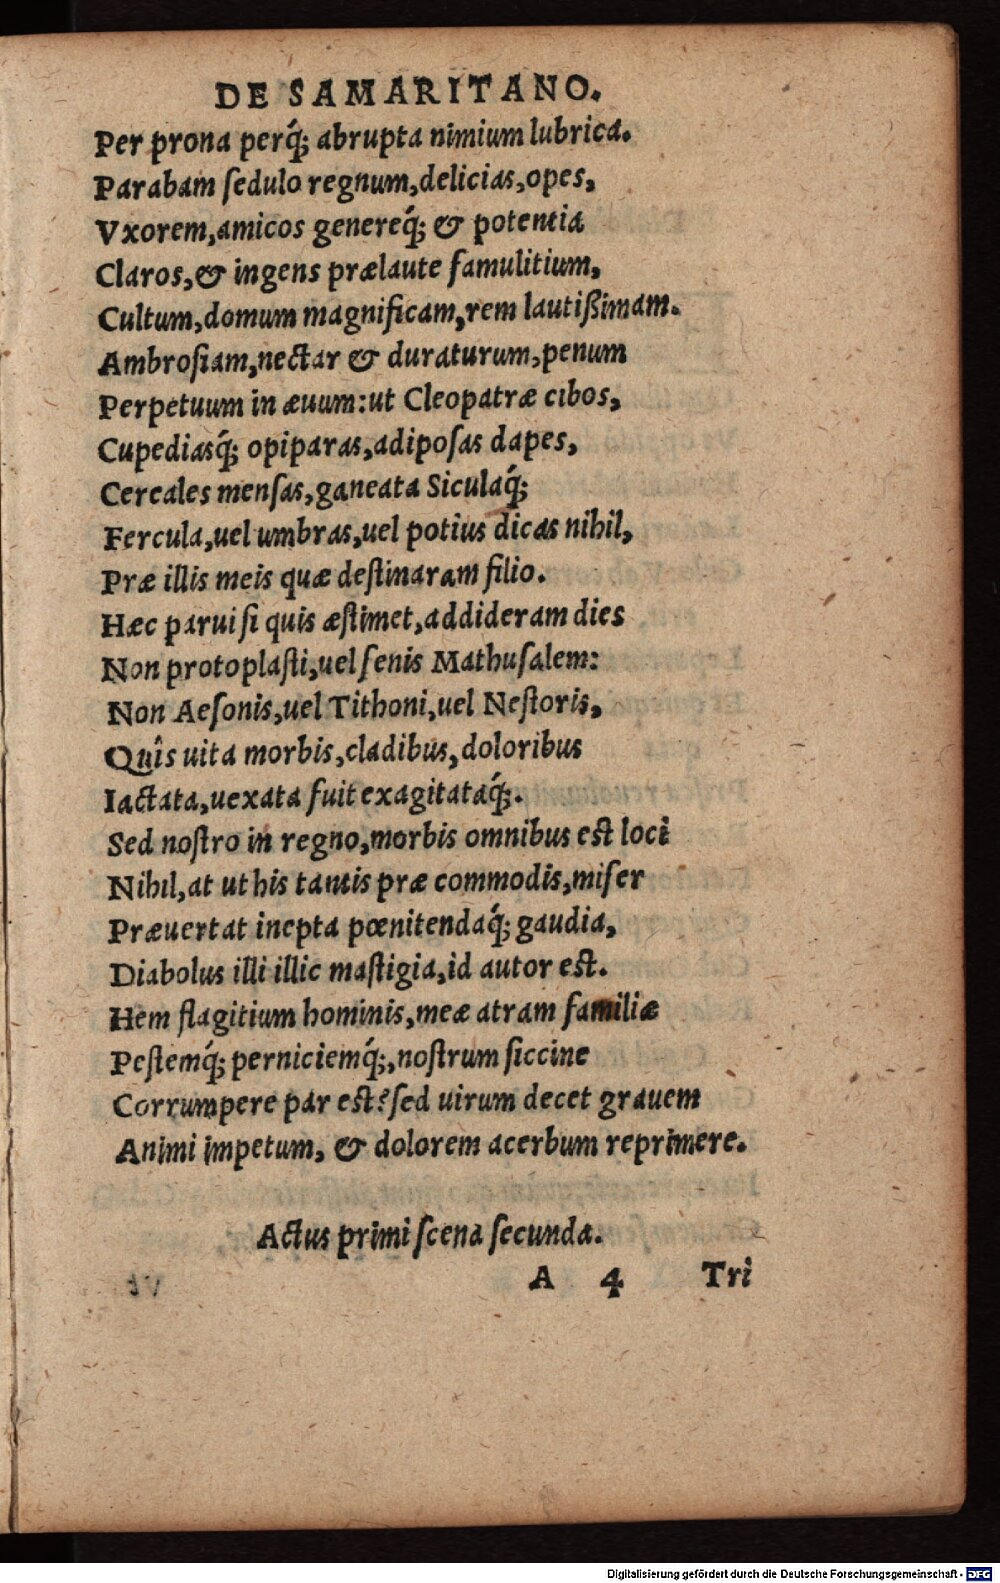 DE SAMARITANO.
Per prona perq́; abrupta nimium lubrica.
Parabam ſedulo regnum,delicias,opes,
Vxorem,amicos genereq́; & potentia
Claros,& ingens prælaute famulitium,
Cultum,domum magnificam,rem lautißimam.
Ambroſiam,nectar & duraturum,penum
Perpetuum in æuum:ut Cleopatræ cibos,
Cupediasq́; opiparas,adipoſas dapes,
Cereales menſas,ganeata Siculaq́;
Fercula,uel umbras,uel potius dicas nihil,
Præ illis meis quæ deſtinaram filio.
Hæc parui ſi quis æſtimet,addideram dies
Non protoplaſti,uel ſenis Mathuſalem:
Non Aeſonis,uel Tithoni,uel Neſtoris,
Quîs uita morbis,cladibus,doloribus
Iactata,uexata fuit exagitataq́;.
Sed noſtro in regno,morbis omnibus est loci
Nihil,at ut his tantis præ commodis,miſer
Præuertat inepta pœnitendaq́; gaudia,
Diabolus illi illic maſtigia,id autor est.
Hem flagitium hominis,meæ atram familiæ
Peſtemq́; perniciemq́;,noſtrum ſiccine
Corrumpere par est?ſed uirum decet grauem
Animi impetum, & dolorem acerbum reprimere.
Actus primi ſcena ſecunda.
A 4 Tri
Digitalisierung gefördert durch die Deutsche Forschungsgemeinschaft - DFG